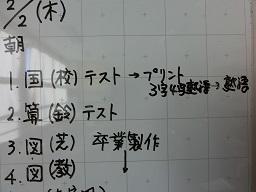 2/2(木)
朝
1.国(校)テスト→プリント
3字4字熟語→熟語
2.算(鈴)テスト
3.図(芝)卒業製作
4.図(教)↓